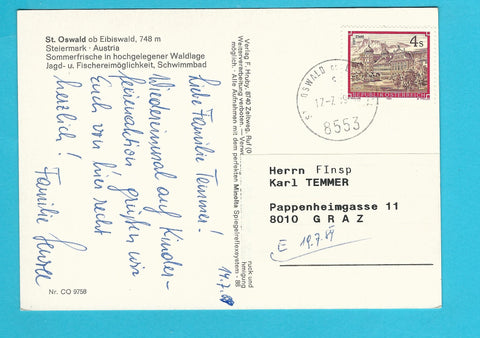 St. Oswald ob Eibiswald, 748 m
Steiermark · Austria
Sommerfrische in hochgelegener Waldlage
Jagd- u. Fischereimöglichkeit, Schwimmbad
Liebe Familie Temmer!
Wiedereinmal auf Kinder-
ferienaktion grüßen wir
Euch von hier recht
herzlich! Familie
19.7.89
Verlag F. Hruby, 8740 Zeltweg, Ruf (0
Weiterverarbeitung verboten. — Verwe
möglich. - Alle Aufnahmen mit dem perfekten Minolta Spiegelreflexsystem - 88
ruck und
hmigung
Nr. CO 9758
4 S
REPUBLIK ÖSTERREICH
ST. OSWALD
17.-7.
8553
Herrn FInsp
Karl TEMMER
Pappenheimgasse 11
8010 GRAZ
E 19.7.89